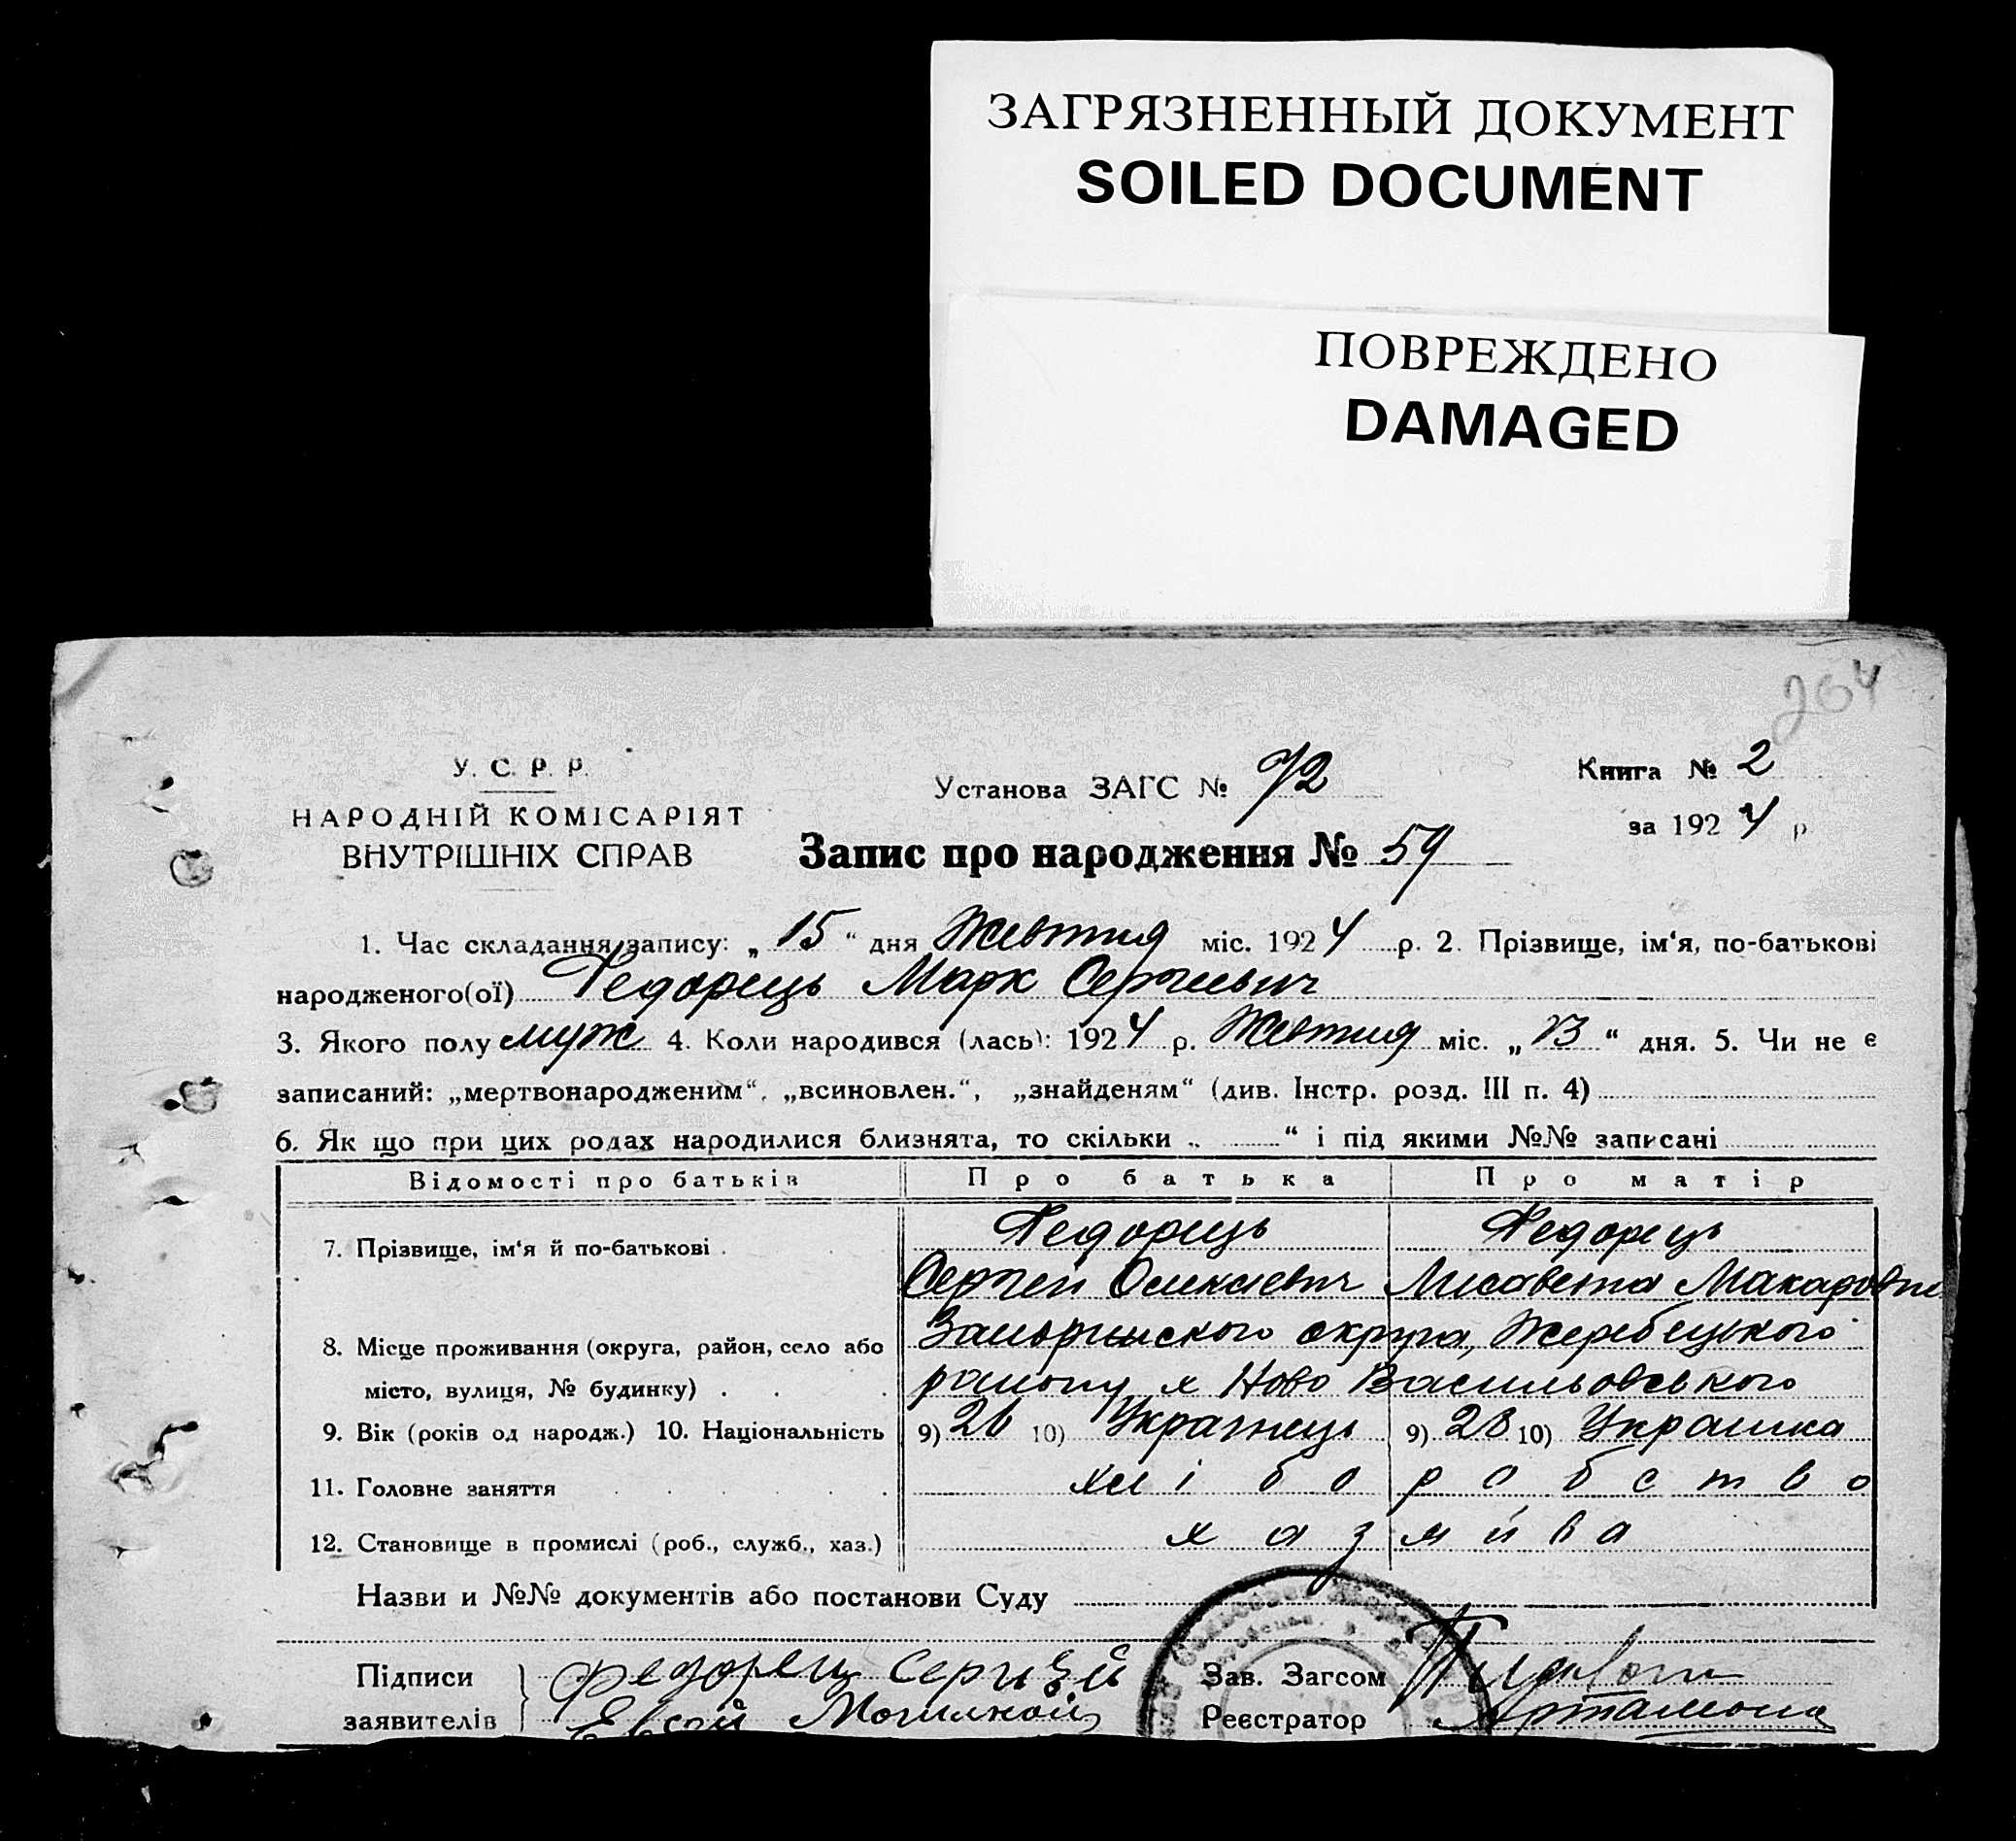 ЗАГРЯЗНЕННЫЙ ДОКУМЕНТ
SOILED DOCUMENT
ПОВРЕЖДЕНО
DAMAGED
204
У. С. Р. Р.
НАРОДНІЙ КОМІСАРІЯТ
ВНУТРІШНІХ СПРАВ
Установа ЗАГС № 72
Книга № 2
за 1924 р
Запис про народження № 59
1. Час складання запису: „ 15 “ дня Жовтня міс. 1924 р. 2. Прізвище, ім'я, по-батькові
народженого(ої) Федорець Марк Сергиевич
3. Якого полу муж 4. Коли народився (лась): 1924 р. Жовтня міс. „ 13 “ дня. 5. Чи не є
записаний: „мертвонародженим“, „всиновлен.“, „знайденям“ (див. Інстр. розд. III п. 4)
6. Як що при цих родах народилися близнята, то скільки „ “ і під якими №№ записані
Відомості про батьків Про батька Про матір
7. Прізвище, ім'я й по-батькові . Федорець Федорець
Сергей Олексіевич Лисавета Макаровна
8. Місце проживання (округа, район, село або Запоризского округа, Жеребецького
місто, вулиця, № будинку) . . . району х Ново Васильовського
9. Вік (років од народж.) 10. Національність 9) 26 10) Украінець 9) 28 10) Украінка
11. Головне заняття . . . . . хлібо робство
12. Становище в промислі (роб., служб., хаз.) хазяйва
Назви и №№ документів або постанови Суду
Підписи Федорец Сергій Зав. Загсом
заявителів Реєстратор